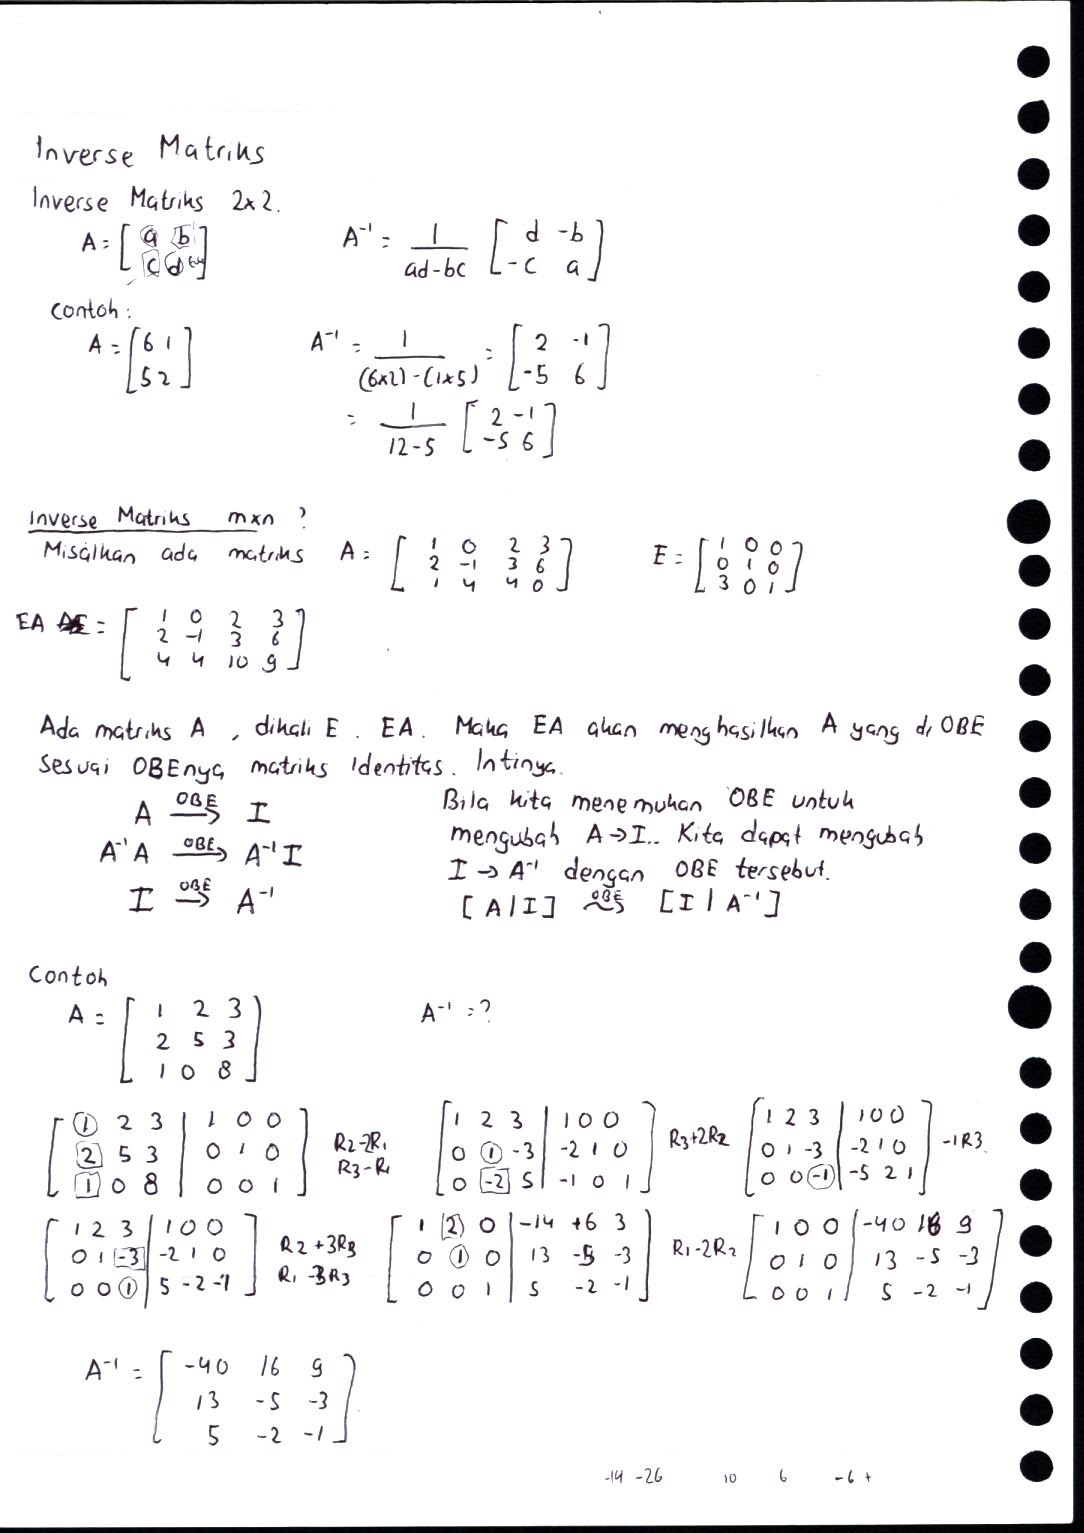 Inverse Matriks
Inverse Matriks 2x2.
A = [ a b ; c d ]    A⁻¹ = 1/(ad-bc) [ d -b ; -c a ]
Contoh:
A = [ 6 1 ; 5 2 ]    A⁻¹ = 1/((6x2)-(1x5)) = [ 2 -1 ; -5 6 ]
= 1/(12-5) [ 2 -1 ; -5 6 ]
Inverse Matriks mxn ?
Misalkan ada matriks A = [ 1 0 2 3 ; 2 -1 3 6 ; 1 4 4 0 ]    E = [ 1 0 0 ; 0 1 0 ; 3 0 1 ]
EA = [ 1 0 2 3 ; 2 -1 3 6 ; 4 4 10 9 ]
Ada matriks A , dikali E . EA. Maka EA akan menghasilkan A yang di OBE
Sesuai OBEnya matriks Identitas. Intinya.
A OBE→ I
A⁻¹A OBE→ A⁻¹I
I OBE→ A⁻¹
Bila kita menemukan OBE untuk
mengubah A→I.. Kita dapat mengubah
I → A⁻¹ dengan OBE tersebut.
[ A | I ] OBE→ [ I | A⁻¹ ]
Contoh
A = [ 1 2 3 ; 2 5 3 ; 1 0 8 ]    A⁻¹ = ?
[ 1 2 3 | 1 0 0 ; 2 5 3 | 0 1 0 ; 1 0 8 | 0 0 1 ] R2-2R1 R3-R1 [ 1 2 3 | 1 0 0 ; 0 1 -3 | -2 1 0 ; 0 -2 5 | -1 0 1 ] R3+2R2 [ 1 2 3 | 1 0 0 ; 0 1 -3 | -2 1 0 ; 0 0 -1 | -5 2 1 ] -1R3.
[ 1 2 3 | 1 0 0 ; 0 1 -3 | -2 1 0 ; 0 0 1 | 5 -2 -1 ] R2+3R3 R1-3R3 [ 1 2 0 | -14 +6 3 ; 0 1 0 | 13 -5 -3 ; 0 0 1 | 5 -2 -1 ] R1-2R2 [ 1 0 0 | -40 16 9 ; 0 1 0 | 13 -5 -3 ; 0 0 1 | 5 -2 -1 ]
A⁻¹ = [ -40 16 9 ; 13 -5 -3 ; 5 -2 -1 ]
-14 -26 10 6 -6 +